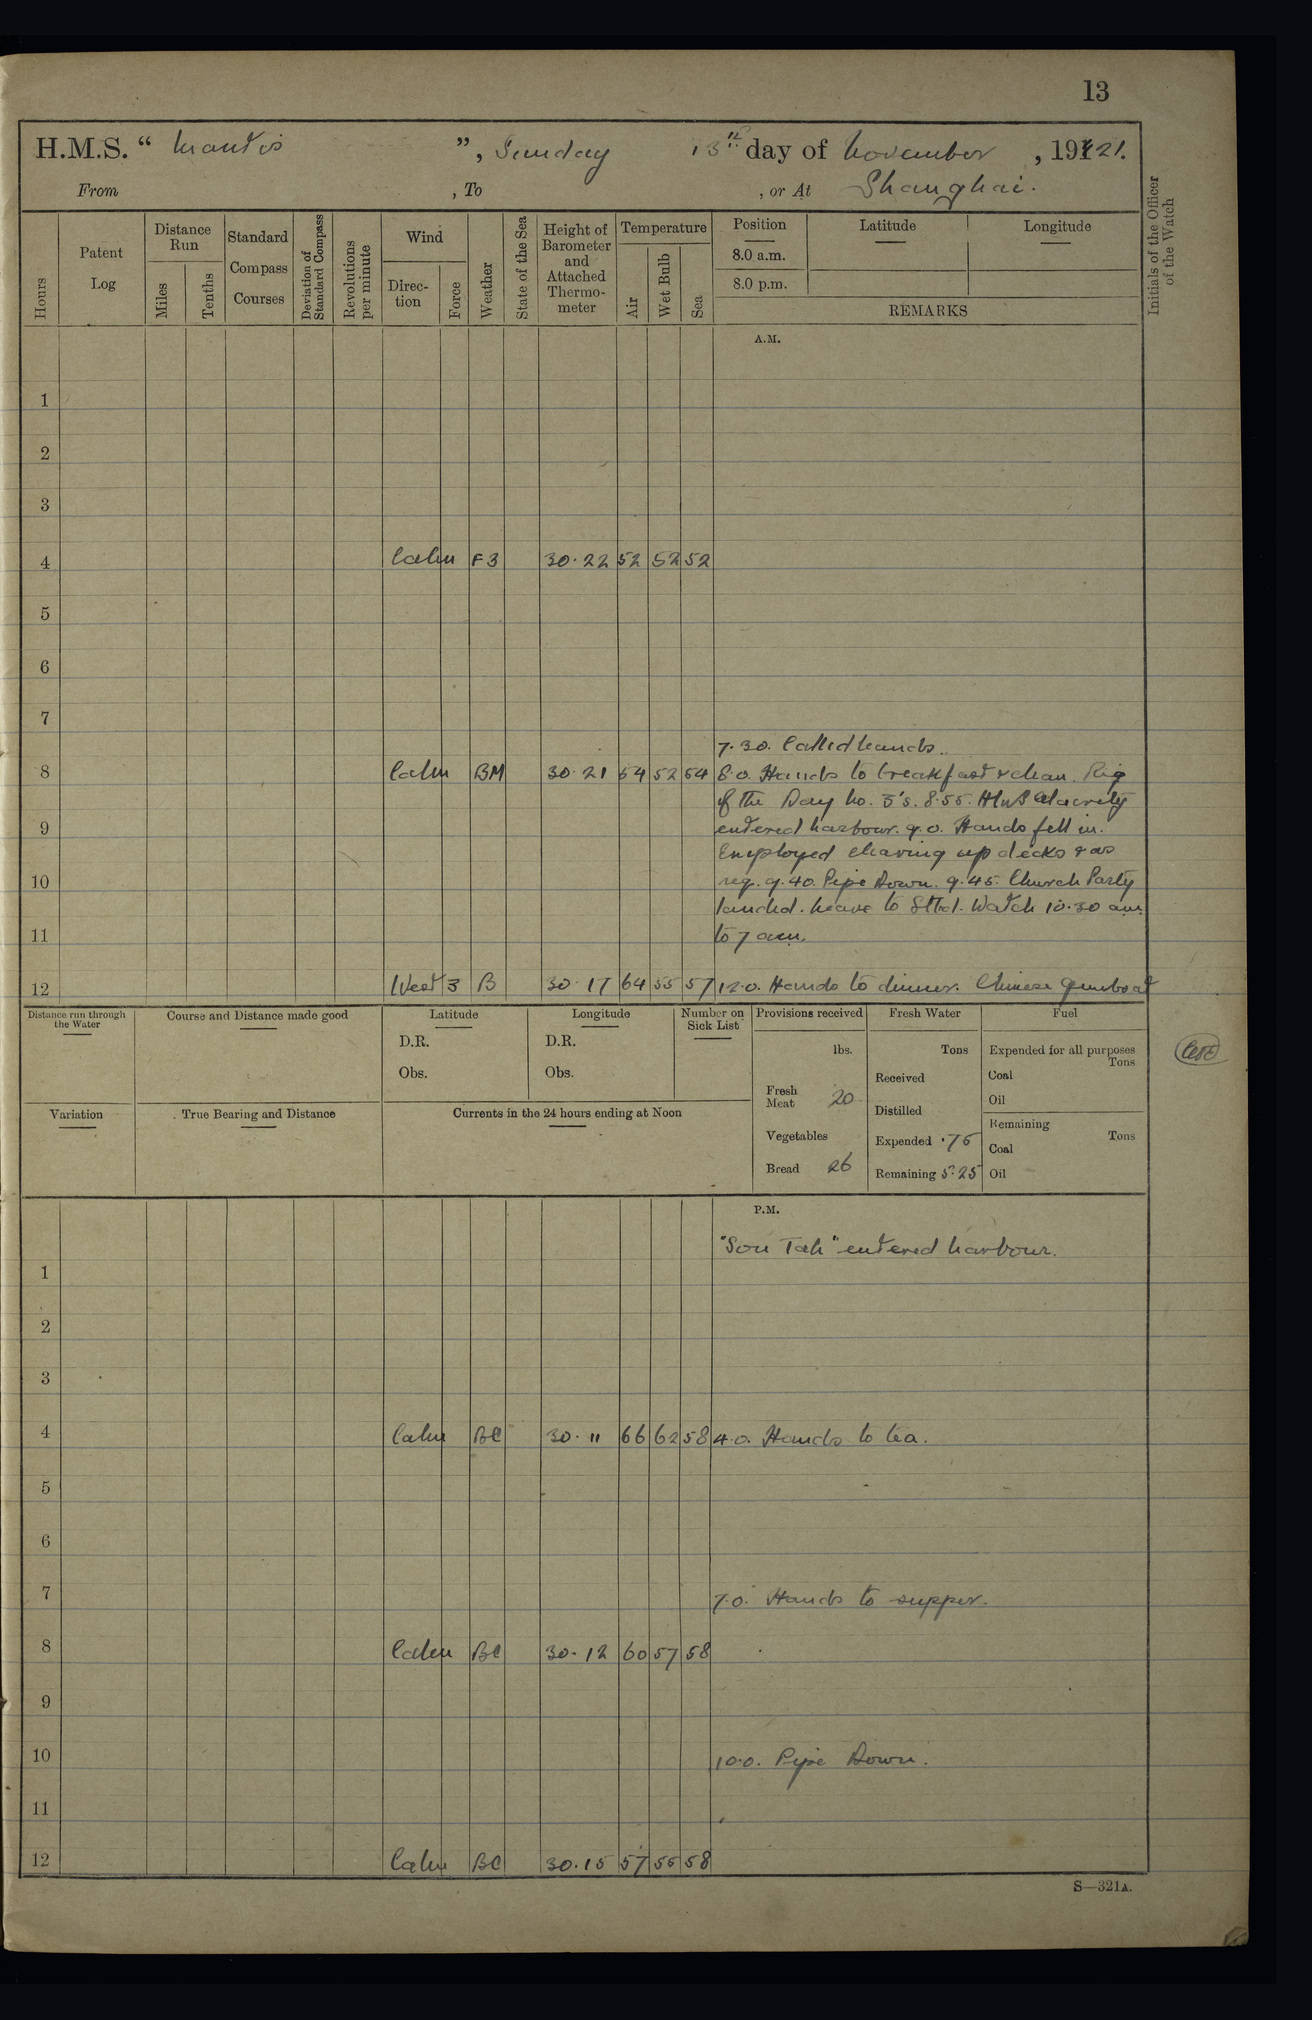 13
H.M.S. “ Mantis ”, Sunday 13th day of November, 1921.
From , To , or At Shanghai.
Hours
Patent Log
Distance Run
Miles
Tenths
Standard Compass Courses
Deviation of Standard Compass
Revolutions per minute
Wind
Direction
Force
Weather
State of the Sea
Height of Barometer and Attached Thermometer
Temperature
Air
Wet Bulb
Sea
Position
8.0 a.m.
8.0 p.m.
Latitude
Longitude
REMARKS
Initials of the Officer of the Watch
A.M.
1
2
3
4 Calm F3 30.22 52 52 52
5
6
7
7.30. Called hands.
8 Calm BM 30.21 54 52 54 8.0. Hands to breakfast & clean. Rig
of the Day No. 3's. 8.55. HMS Alacrity
9 entered harbour. 9.0. Hands fell in.
Employed clearing up decks & as
10 req. 9.40. Pipe Down. 9.45. Church Party
landed. Leave to Stbd. Watch 10.30 am
11 to 7 am.
12 West 3 B 30.17 64 55 57 12.0. Hands to dinner. Chinese gunboat
Distance run through the Water
Course and Distance made good
Latitude
D.R.
Obs.
Longitude
D.R.
Obs.
Number on Sick List
Provisions received
lbs.
Fresh Meat 20
Vegetables
Bread 26
Fresh Water
Tons
Received
Distilled
Expended .75
Remaining 5.25
Fuel
Expended for all purposes
Tons
Coal
Oil
Remaining
Tons
Coal
Oil
Variation
True Bearing and Distance
Currents in the 24 hours ending at Noon
P.M.
"Sou Tah" entered harbour.
1
2
3
4 Calm BC 30.11 66 62 58 4.0. Hands to tea.
5
6
7 7.0. Hands to supper.
8 Calm BC 30.12 60 57 58
9
10 10.0. Pipe Down.
11
12 Calm BC 30.15 57 55 58
S—321A.